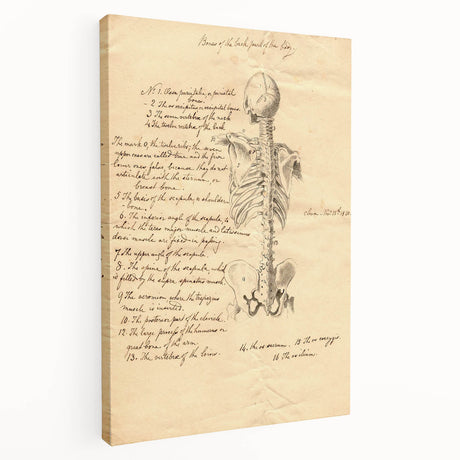 Bones of the back part of the body
No 1. Ossa parietalia, or parietal
bones.
- 2 The os occipitis or occipital bone.
3 The seven vertebræ of the neck
4 The twelve vertebræ of the back
The mark 0, the twelve ribs; the seven
upper ones are called true and the five
lower ones false, because they do not
articulate with the sternum, or
breast bone.
5 The basis of the scapula, or shoulder
-bone.
6. The inferior angle of the scapula, to
which the teres major muscle and latissimus
dorsi muscle are fixed in passing.
7 The upper angle of the scapula.
8. The spine of the scapula, which
is filled by the supra spinatus muscle.
9 The acromion where the trapezius
muscle is inserted.
10. The posterior part of the clavicle.
12. The large process of the humerus or
great bone of the arm.
13. The vertebræ of the loins.
14. The os sacrum. 15 The os coccygis.
16 The os ilium.